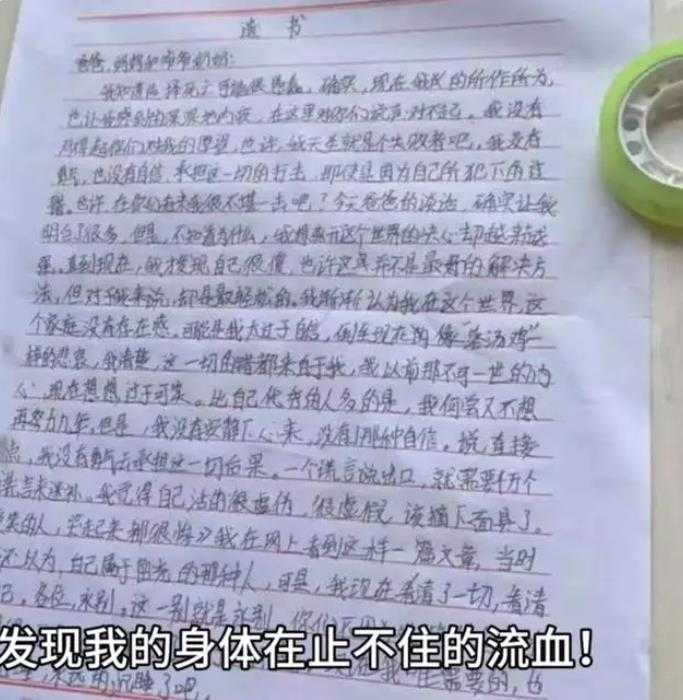 遗书
爸爸,妈妈和爷爷奶奶:
我知道选择死亡可能很愚蠢,确实,现在我的所作所为,
也让你感到内疚,在这里对你们说声对不起。我没有
对得起你们对我的厚望,也许,我天生就是个失败者吧,我没有
勇气,也没有自信,承担这一切的打击,即使是因为自己所犯下的过
错。也许,在你们看来我很不堪一击吧?今天爸爸的谈话,确实让我
明白了很多,但是,不知道为什么,我想离开这个世界的决心却越来越
强,直到现在,我才发现自己很傻,也许这并不是最好的解决方
法,但对于我来说,却是最轻松的。我渐渐认为我在这个世界,这
个家庭没有存在感,可能是我太过于自信,倒至现在沟像"落汤鸡"一
样的悲哀,我清楚,这一切的错都来自于我,我以前那不可一世的内
心,现在想想过于可笑。比自己优秀的人多的是,我何尝又不想
再努力九年,但是,我没有安静下心来,没有了那种自信。说直接
点,我没有勇气去承担这一切后果。一个谎言说出口,就需要千万个
谎言来弥补,我觉得自己活的很虚伪,很虚假,该摘下面具了。
的人,笑起来都很惨》我在网上看到这样一篇文章,当时
还以为,自己属于阳光的那种人,可是,我现在看清了一切,看清
自己。各位,永别。这一别就是永别
发现我的身体在止不住的流血!
需要的,也
沉睡了吧